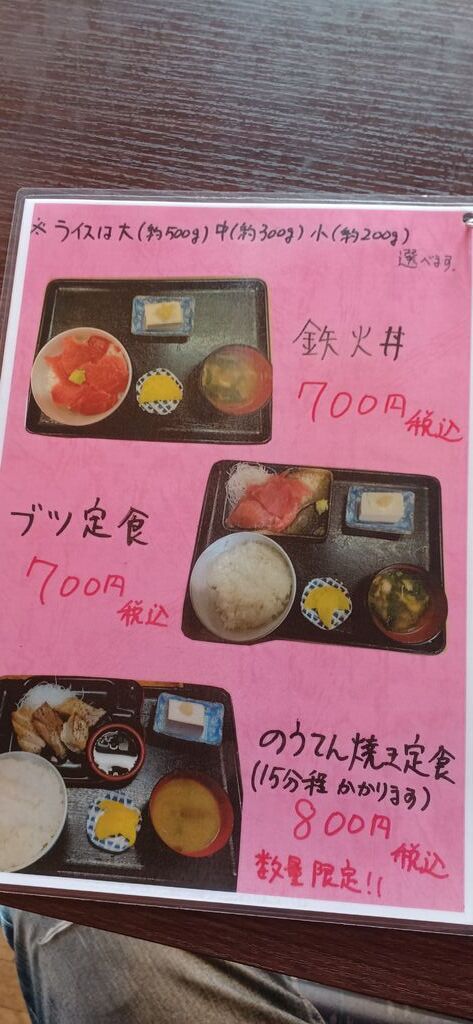 ※ライスは大(約500g)中(約300g)小(約200g)
選べます。
鉄火丼
700円
税込
ブツ定食
700円
税込
のうてん焼き定食
(15分程かかります)
800円
税込
数量限定!!